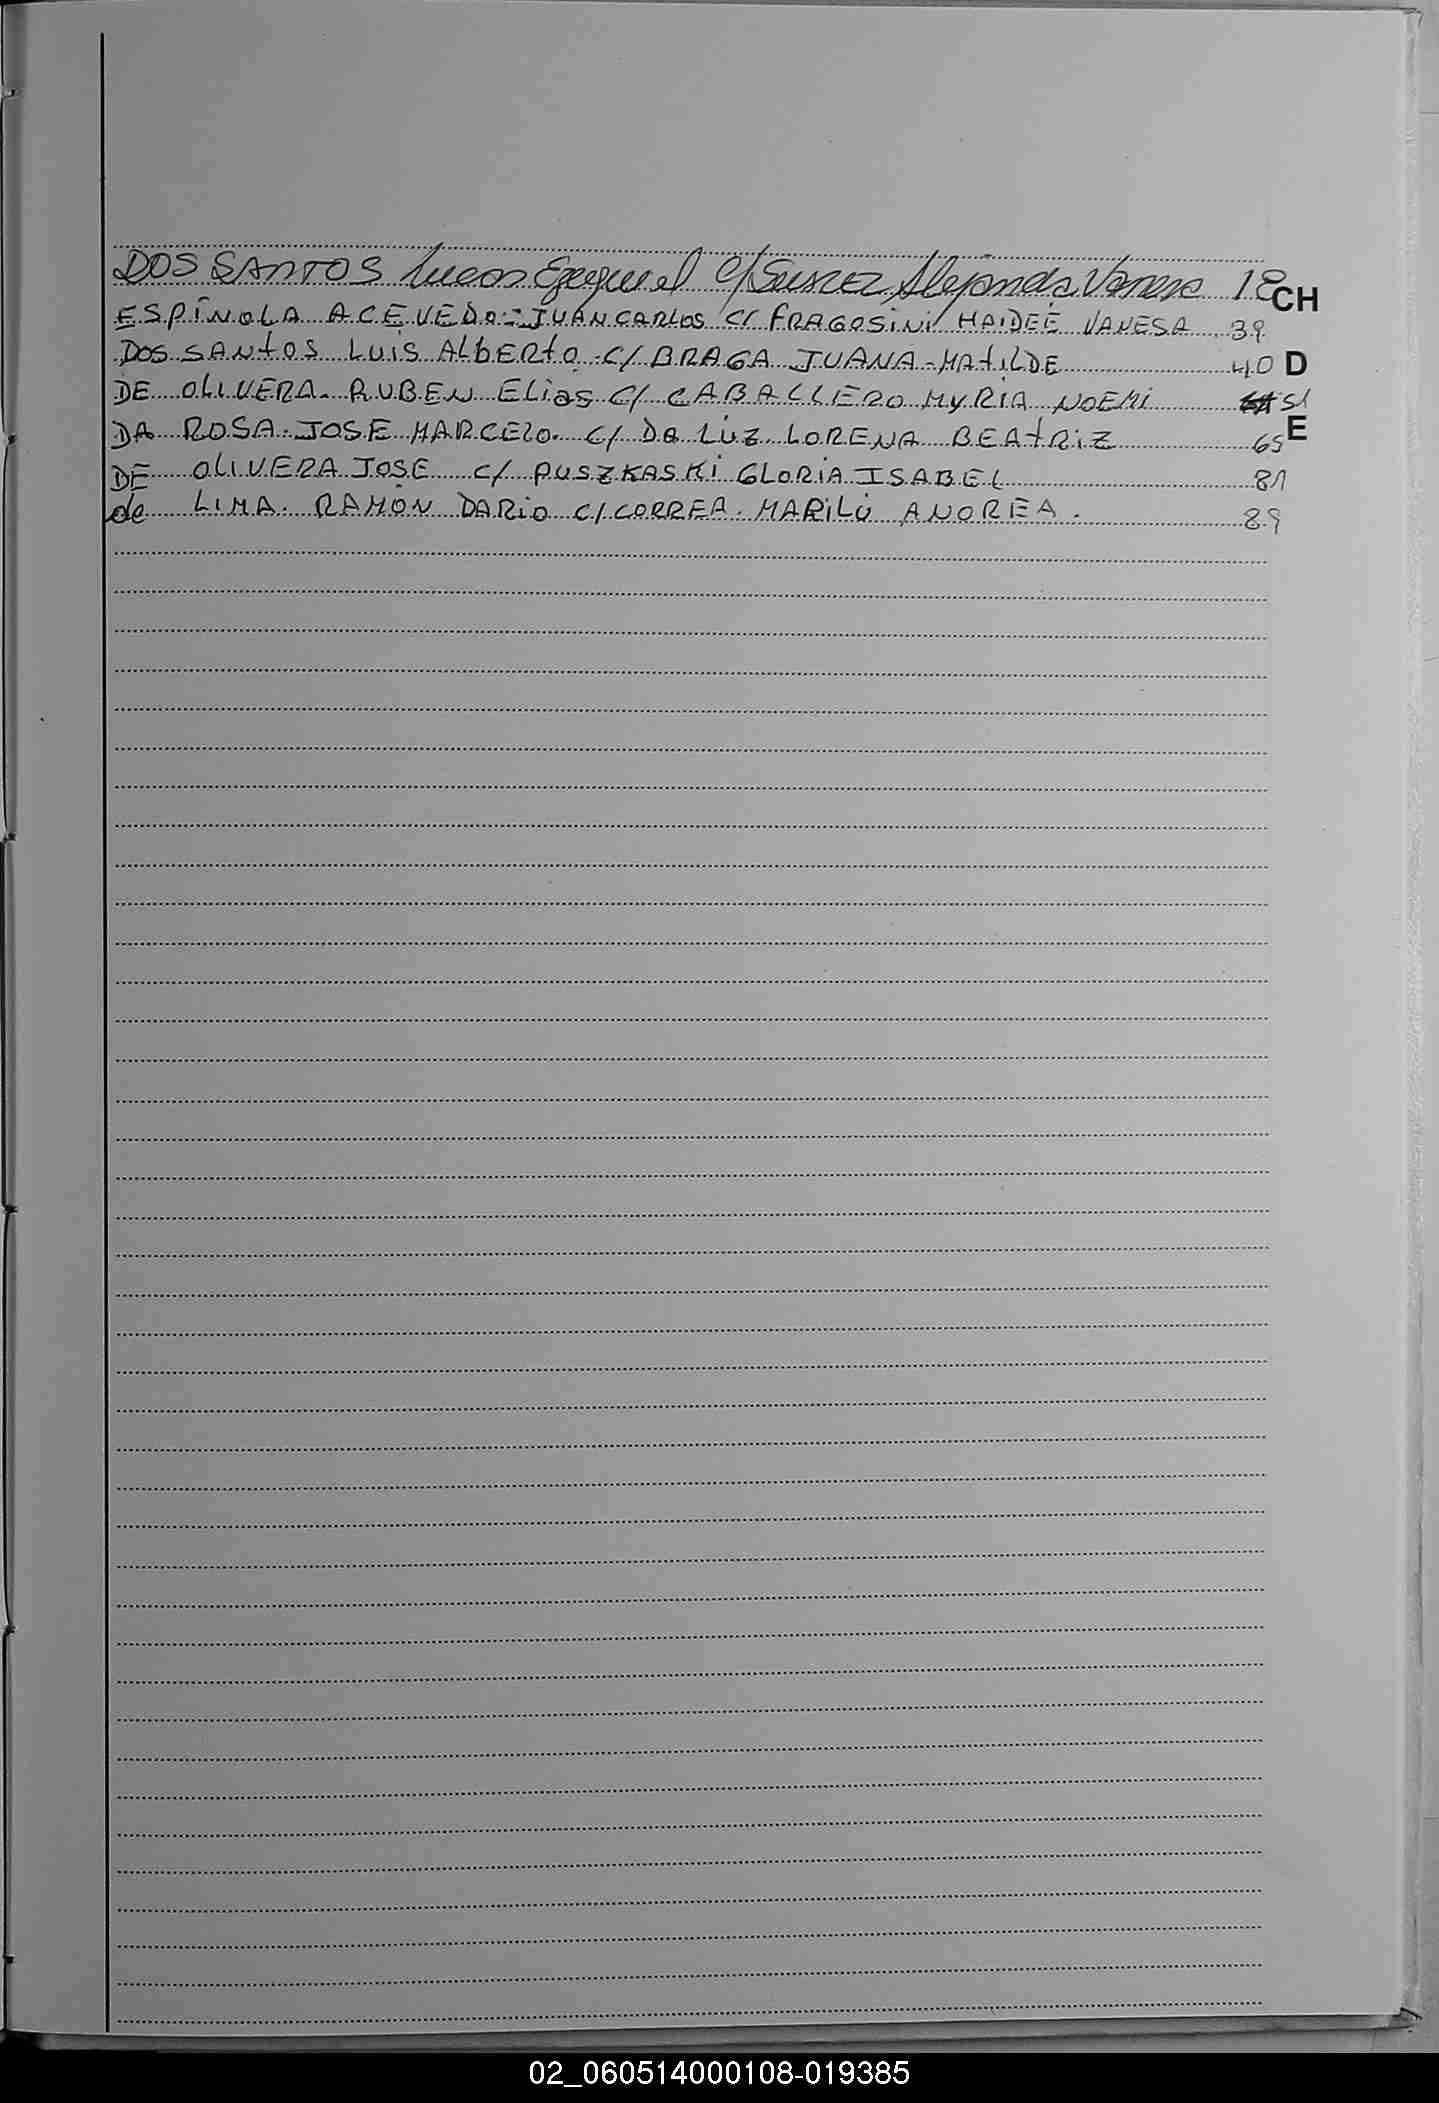 DOS SANTOS Lucas Ezequiel c/ Suarez Alejandra Vanesa 18 CH
ESPÍNOLA ACEVEDO - JUAN CARLOS C/ FRAGOSINI HAIDEE VANESA 39
DOS SANTOS LUIS ALBERTO C/ BRAGA JUANA - MATILDE 40 D
DE OLIVERA RUBEN Elias C/ CABALLERO MYRIA NOEMI 51
DA ROSA JOSE MARCELO C/ Da LUZ LORENA BEATRIZ 65 E
DE OLIVERA JOSE C/ PUSZKASKI GLORIA ISABEL 81
de LIMA RAMÓN DARIO C/ CORREA MARILÚ ANDREA. 89
02_060514000108-019385